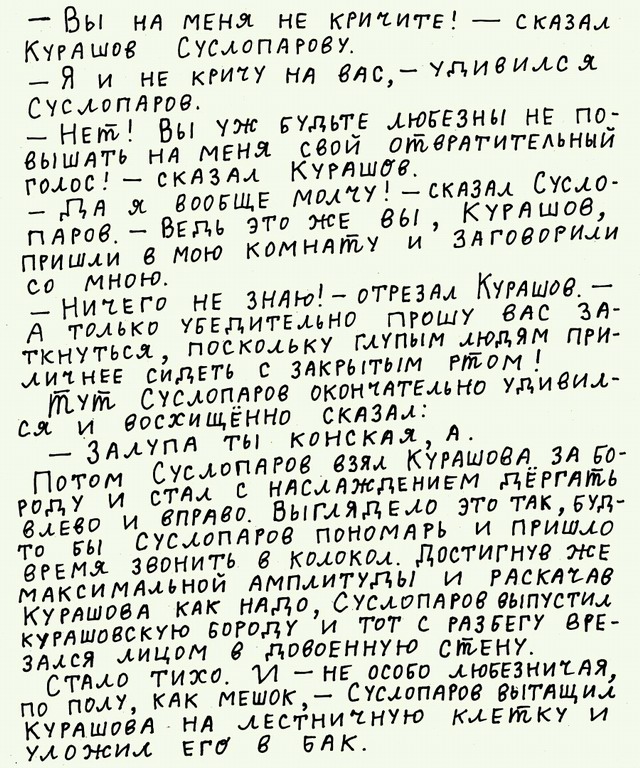 — Вы на меня не кричите! — сказал
Курашов Суслопарову.
— Я и не кричу на вас, — удивился
Суслопаров.
— Нет! Вы уж будьте любезны не по-
вышать на меня свой отвратительный
голос! — сказал Курашов.
— Да я вообще молчу! — сказал Сусло-
паров. — Ведь это же вы, Курашов,
пришли в мою комнату и заговорили
со мною.
— Ничего не знаю! — отрезал Курашов. —
А только убедительно прошу вас за-
ткнуться, поскольку глупым людям при-
личнее сидеть с закрытым ртом!
Тут Суслопаров окончательно удивил-
ся и восхищённо сказал:
— Залупа ты конская, а.
Потом Суслопаров взял Курашова за бо-
роду и стал с наслаждением дёргать
влево и вправо. Выглядело это так, буд-
то бы Суслопаров пономарь и пришло
время звонить в колокол. Достигнув же
максимальной амплитуды и раскачав
Курашова как надо, Суслопаров выпустил
курашовскую бороду и тот с разбегу вре-
зался лицом в довоенную стену.
Стало тихо. И — не особо любезничая,
по полу, как мешок, — Суслопаров вытащил
Курашова на лестничную клетку и
уложил его в бак.